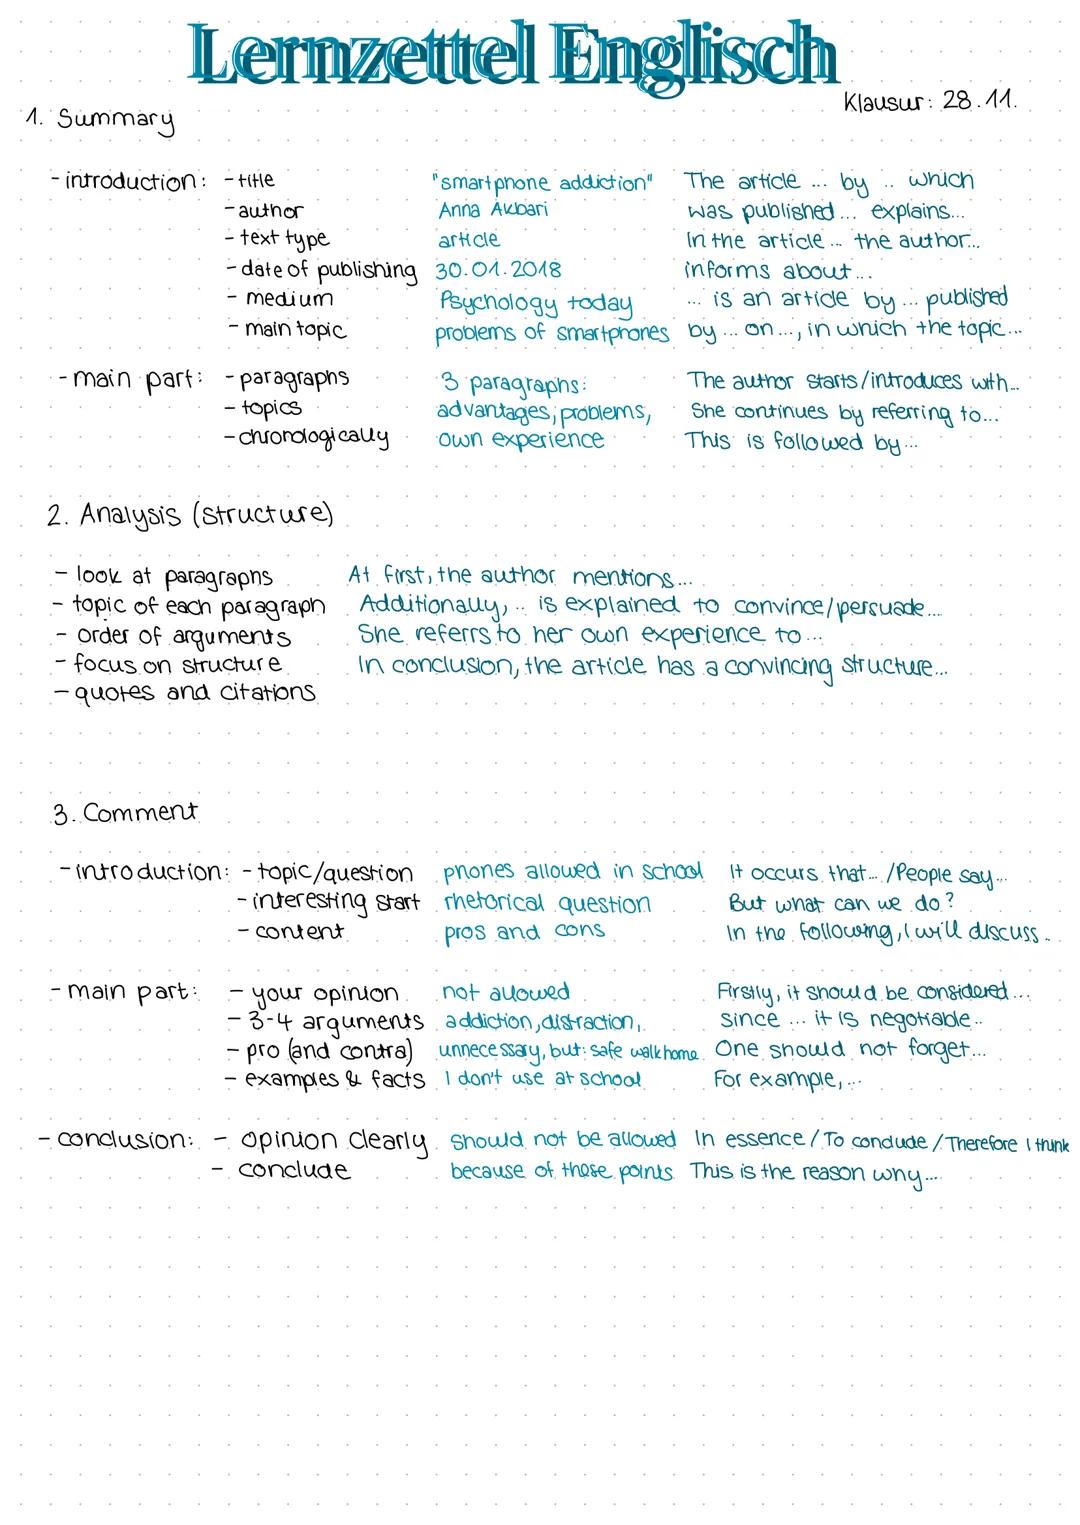 Lernzettel Englisch
Klausur: 28.11.
1. Summary
- introduction: - title "smartphone addiction" The article ... by .. which
- author Anna Akbari was published... explains...
- text type article In the article ... the author...
- date of publishing 30.01.2018 informs about...
- medium Psychology today ... is an article by ... published
- main topic problems of smartphones by ... on ..., in which the topic...
- main part: - paragraphs 3 paragraphs: The author starts/introduces with...
- topics advantages, problems, She continues by referring to...
- chronologically own experience This is followed by...
2. Analysis (structure)
- look at paragraphs At first, the author mentions...
- topic of each paragraph Additionally, .. is explained to convince/persuade...
- order of arguments She referrs to her own experience to ...
- focus on structure In conclusion, the article has a convincing structure...
- quotes and citations
3. Comment
- introduction: - topic/question phones allowed in school It occurs that... /People say...
- interesting start rhetorical question But what can we do?
- content pros and cons In the following, I will discuss..
- main part: - your opinion not allowed Firstly, it should be considered...
- 3-4 arguments addiction, distraction, since ... it is negotiable..
- pro (and contra) unnecessary, but: safe walk home One should not forget...
- examples & facts I don't use at school For example,...
- conclusion: - opinion clearly should not be allowed In essence / To conclude / Therefore I think
- conclude because of these points This is the reason why...